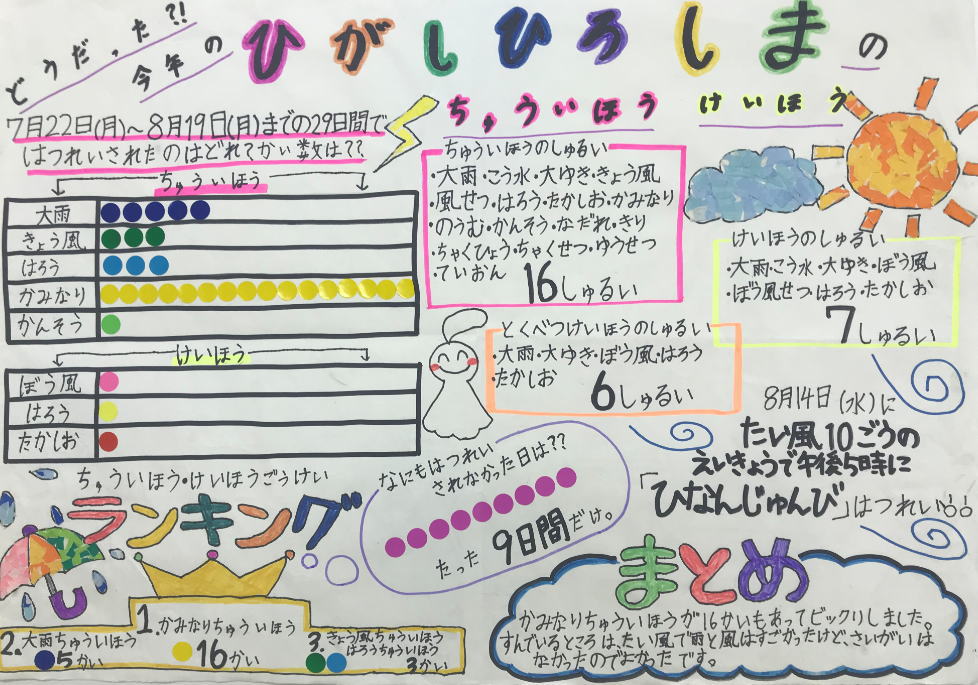 どうだった?!
今年の
ひがしひろしまの
ちゅういほう けいほう
7月22日(月)~8月19日(月)までの29日間で
はつれいされたのはどれでかい数は??
ちゅういほう
大雨
きょう風
はろう
かみなり
かんそう
けいほう
ぼう風
はろう
たかしお
ちゅういほうのしゅるい
・大雨・こう水・大ゆき・きょう風
・風せつ・はろう・たかしお・かみなり
・のうむ・かんそう・なだれ・きり
・ちゃくひょう・ちゃくせつ・ゆうせつ
・ていおん
16しゅるい
けいほうのしゅるい
・大雨・こう水・大ゆき・ぼう風
・ぼう風せつ・はろう・たかしお
7しゅるい
とくべつけいほうのしゅるい
・大雨・大ゆき・ぼう風・はろう
・たかしお
6しゅるい
8月14日(水)に
たい風10ごうの
えいきょうで午後5時に
「ひなんじゅんび」はつれい!!
なにもはつれい
されなかった日は??
たった9日間だけ。
ちゅういほう・けいほうごうけい
ランキング
1.かみなりちゅういほう
16かい
2.大雨ちゅういほう
5かい
3.きょう風ちゅういほう
はろうちゅういほう
3かい
まとめ
かみなりちゅういほうが16かいもあってビックリしました。
すんでいるところは、たい風で雨と風はすごかったけど、さいがいは
なかったのでよかったです。